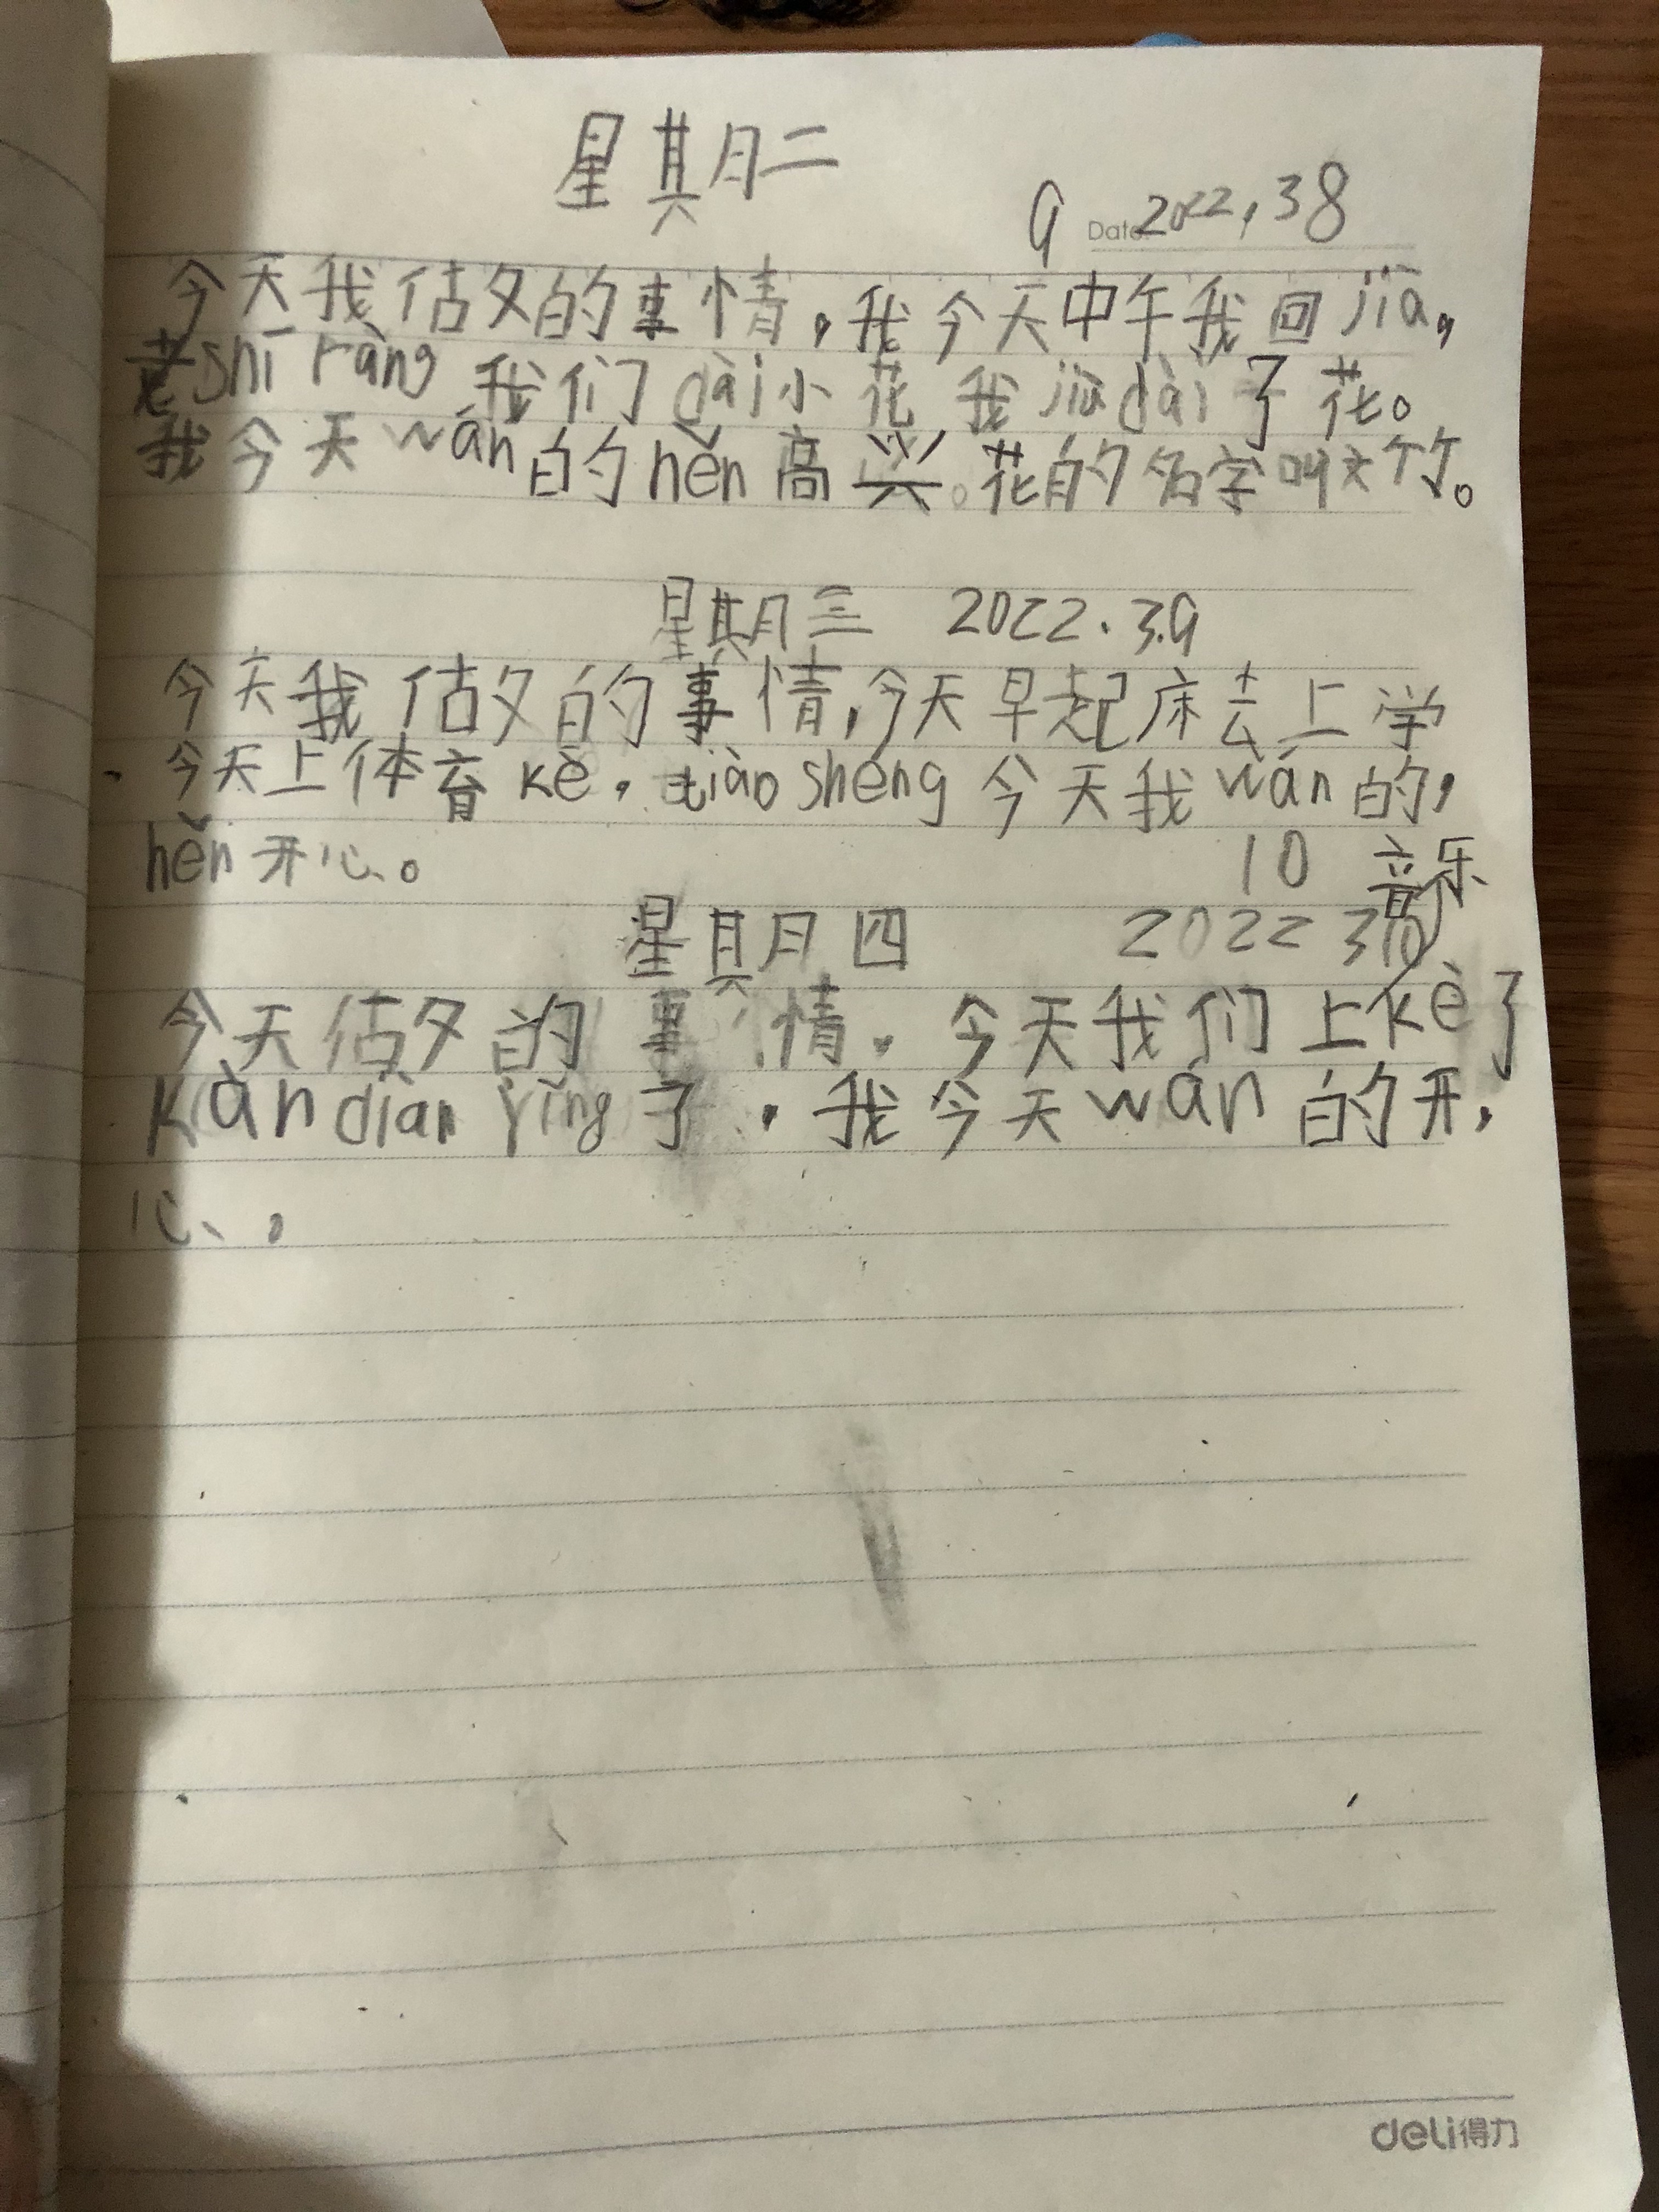 星期二
9 Date: 2022,38
今天我估夂的事情,我今天中午我回jiā,
老shī ràng 我们dài小花 我jiù dài了花。
我今天wán的hěn高兴。花的名字叫文竹。
星期三 2022.3.9
今天我估夂的事情,今天早起床去上学
今天上体育kè,tiào shéng今天我wán的,
hěn开心。
10 音乐
星期四 2022 310
今天估夂的事情。今天我们上kè了
kàn diàn yǐng了,我今天wán的开,
心。
deli得力